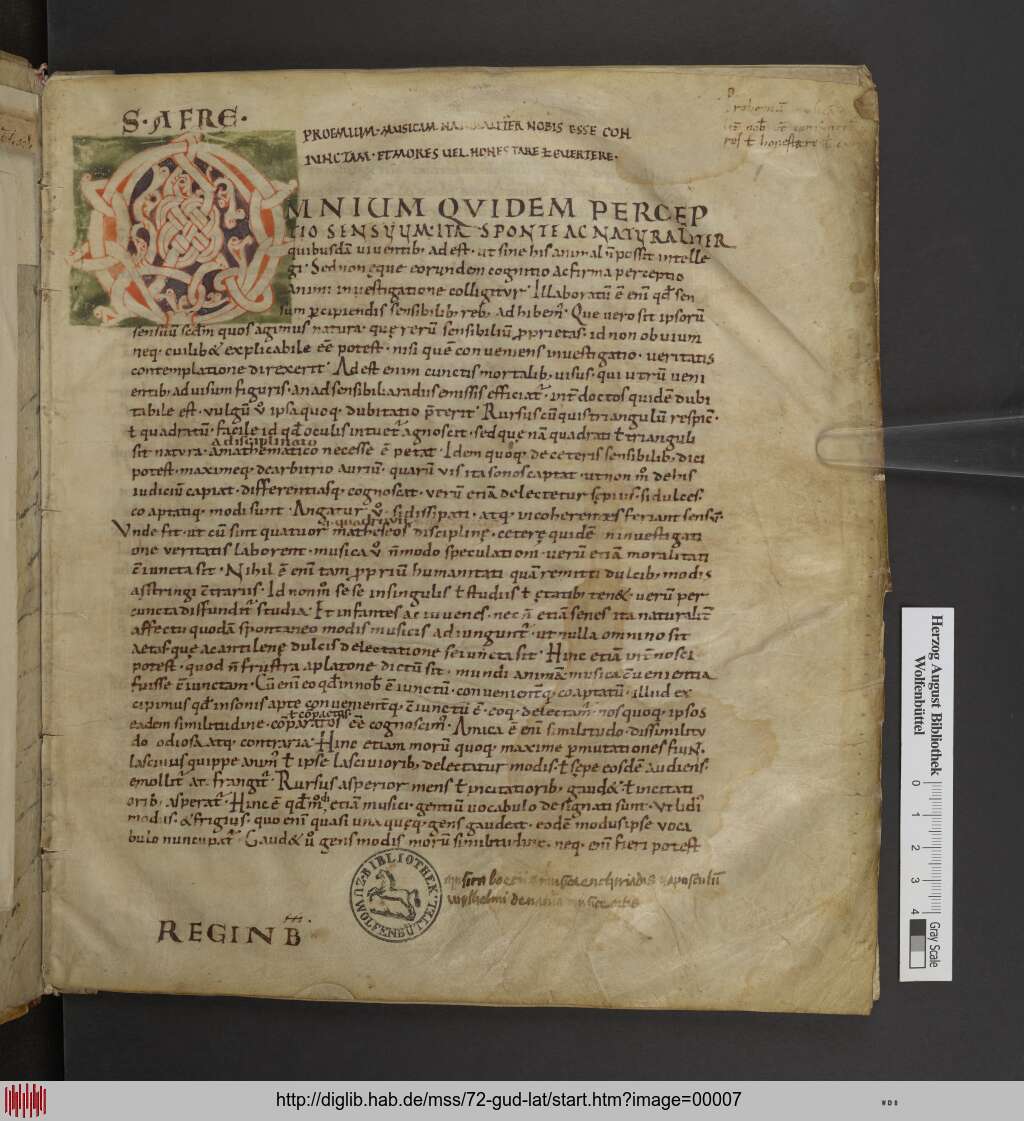 S·AFRE·
PROEMIUM·MUSICAM NATURALITER NOBIS ESSE CON
IUNCTAM·ET MORES UEL HONESTARE ł EUERTERE·
OMNIUM QVIDEM PERCEP
TIO SENSUUM·ITA SPONTE AC NATURALITER
quibusdā uiuentib; adest·ut sine his animal n̄ possit intelle
gi· Sed non ęque eorundem cognitio ac firma perceptio
animi inuestigatione colligitur· Illaboratū ē eni qđ sen
sum ꝑcipiendis sensibilib; reb; adhibem᷒· Que uero sit ipsorū
sensuū scđm quos agimus natura· quę rerū sensibiliū ꝓprietas· id non obuium
neq; cuilib& explicabile eē potest· nisi quē conueniens inuestigatio· ueritatis
contemplatione direxerit· Adest enim cunctis mortalib; uisus· qui utrū ueni
entib; ad uisum figuris· an ad sensibilia radiis emissis efficiat᷒· int̄ doctos quidē dubi
tabile est· uulgū ů ipsa quoq; dubitatio p̄terit· Rursus cū quis triangulū respic̄·
ł quadratū· facile id qđ oculis intuet᷒ agnoscit· sed quę nā quadrati ł trianguli
a disciplinato
sit natura· a mathematico necesse ē petat· Idem quoq; de ceteris sensibilib; dici
potest· maximeq; de arbitrio auriū· quarū uis ita sonos captat· ut non m̊ de his
iudiciū capiat· differentiasq; cognoscat· uerū etiā delectetur sępius· si dulces·
coaptatiq; modi sunt· Angatur ů· si dissipati· atq; incoherentes feriant sensū·
i·quadruuii
Vnde fit· ut cū sint quatuor matheseos disciplinę· ceterę quidē in inuestigati
one ueritatis laborent· musica ů n̄ modo speculationi· uerū etiā moralitati
c̄iuncta sit· Nihil ē eni tam ꝓpriū humanitati quā remitti dulcib; modis
asstringi c̄trariis· Id non m̊ sese in singulis ł studiis ł ętatib; ten&· uerū per
cuncta diffundit᷒ studia· Et infantes ac iuuenes· nec n̄ etiā senes ita naturalit̄
affectu quodā spontaneo modis musicis adiungunt᷒· ut nulla omnino sit
aetas quę a cantilenę dulcis delectatione seiuncta sit· Hinc etiā int̄nosci
potest· quod n̄ frustra a platone dictū sit· mundi animā musica c̄uenientia
fuisse c̄iunctam· Cū eni eo qđ in nob̄ ē iunctū· conuenient̄q; coaptatū· illud ex
cipimus qđ in sonis apte conuenient̄q; c̄iunctū ē· eoq; delectam᷒· nos quoq; ipsos
ł cōpactos
eadem similitudine· cōparatos eē cognoscim᷒· Amica ē eni similitudo· dissimilitu
do odiosa atq; contraria· Hinc etiam morū quoq; maxime ꝑmutationes fiuN·
lasciuius quippe anim᷒ ł ipse lasciuiorib; delectatur modis· ł sępe eosdē audiens·
emollit᷒ at frangit᷒· Rursus asperior mens ł incitatiorib; gaud& ł incitati
orib; asperat᷒· Hinc ē qđ m̊ etiam musici· gentiū uocabulo designati sunt· Vt lidi᷒
modus· & frigius· quo eni quasi una quęq; gens gaudeat· eodē modus ipse uoca
bulo nuncupat᷒· Gaud& ů gens modis morū similitudine· neq; eni fieri potest
REGINB
BIBLIOTHEK
ZU WOLFENBÜTTEL
Herzog August Bibliothek
Wolfenbüttel
0
1
2
3
4
Gray Scale
http://diglib.hab.de/mss/72-gud-lat/start.htm?image=00007